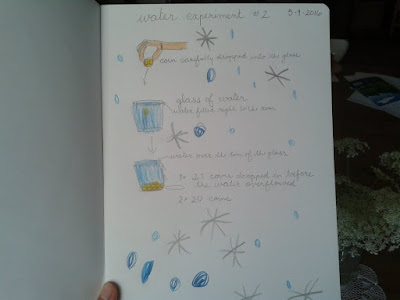 water experiment #2
5-9-2016
coin carefully dropped into the glass
glass of water
water filled right to the rim
water over the rim of the glass
1x 27 coins dropped in before
the water overflowed
2x 20 coins